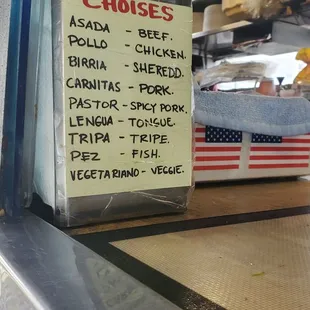 CHOISES
ASADA - BEEF.
POLLO - CHICKEN.
BIRRIA - SHEREDD.
CARNITAS - PORK.
PASTOR - SPICY PORK.
LENGUA - TONGUE.
TRIPA - TRIPE.
PEZ - FISH.
VEGETARIANO - VEGGIE.